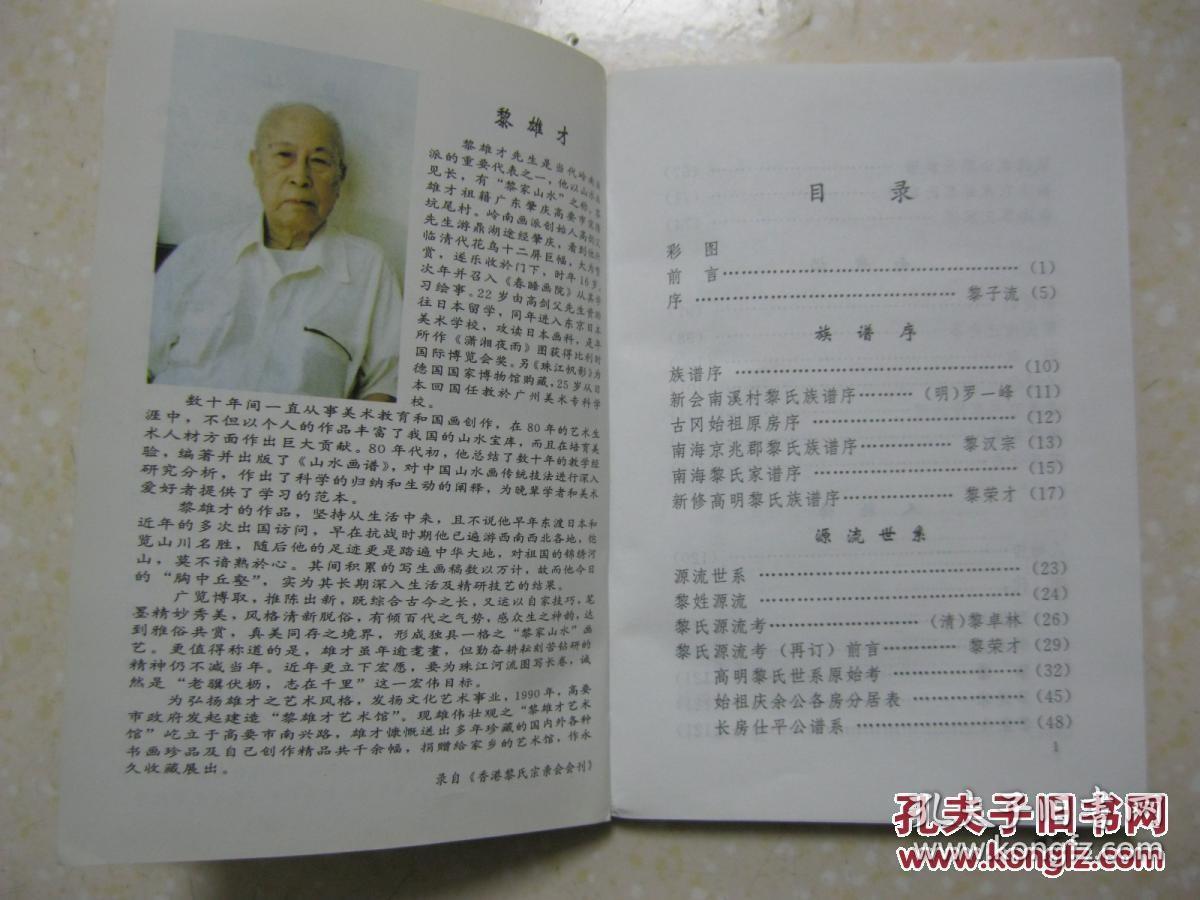 黎雄才
黎雄才先生是当代岭南画
派的重要代表之一，他以山水画
见长，有“黎家山水”之称。黎
雄才祖籍广东肇庆高要市
坑尾村。岭南画派创始人高剑父
先生游鼎湖途经肇庆，看到他所
临清代花鸟十二屏巨幅，大为赞
赏，遂乐收於门下，时年16岁，
次年并召入《春睡画院》从其学
习绘事。22岁由高剑父先生资助
往日本留学，同年进入东京日本
美术学校，攻读日本画科，是年
所作《潇湘夜雨》图获得比利时
国际博览会奖。另《珠江帆影》为
德国国家博物馆购藏，25岁从日
本回国任教於广州美术专科学
校。
数十年间一直从事美术教育和国画创作，在80年的艺术生
涯中，不但以个人的作品丰富了我国的山水宝库，而且在培育美
术人材方面作出巨大贡献。80年代初，他总结了数十年的教学经
验，编著并出版了《山水画谱》，对中国山水画传统技法进行深入
研究分析，作出了科学的归纳和生动的阐释，为晚辈学者和美术
爱好者提供了学习的范本。
黎雄才的作品，坚持从生活中来，且不说他早年东渡日本和
近年的多次出国访问，早在抗战时期他已遍游西南西北各地，饱
览山川名胜，随后他的足迹更是踏遍中华大地，对祖国的锦绣河
山，莫不谙熟於心。其间积累的写生画稿数以万计，故而他今日
的“胸中丘壑”，实为其长期深入生活及精研技艺的结果。
广览博取，推陈出新，既综合古今之长，又运以自家技巧，笔
墨精妙秀美，风格清新脱俗，有倾百代之气势，感众生之神韵，达
到雅俗共赏，真美同存之境界，形成独具一格之“黎家山水”画
艺。更值得称道的是，雄才虽年逾耄耋，但勤奋耕耘刻苦钻研的
精神仍不减当年。近年更立下宏愿，要为珠江河流图写长卷，诚
然是“老骥伏枥，志在千里”这一宏伟目标。
为弘扬雄才之艺术风格，发扬文化艺术事业，1990年，高要
市政府发起建造“黎雄才艺术馆”。现雄伟壮观之“黎雄才艺术
馆”屹立于高要市南兴路，雄才慷慨送出多年珍藏的国内外各种
书画珍品及自己创作精品共千余幅，捐赠给家乡的艺术馆，作永
久收藏展出。
录自《香港黎氏宗亲会会刊》
目 录
彩 图
前 言……………………………(1)
序……………………………黎子流(5)
族 谱 序
族谱序……………………………(10)
新会南溪村黎氏族谱序………(明)罗一峰(11)
古冈始祖原房序……………………(12)
南海京兆郡黎氏族谱序…………黎汉宗(13)
南海黎氏家谱序……………………(15)
新修高明黎氏族谱序……………黎荣才(17)
源 流 世 系
源流世系……………………………(23)
黎姓源流……………………………(24)
黎氏源流考………………(清)黎卓林(26)
黎氏源流考（再订）前言…………黎荣才(29)
高明黎氏世系原始考………………(32)
始祖庆余公各房分居表……………(45)
长房仕平公谱系……………………(48)
1
孔夫子旧书网
www.kongfz.com